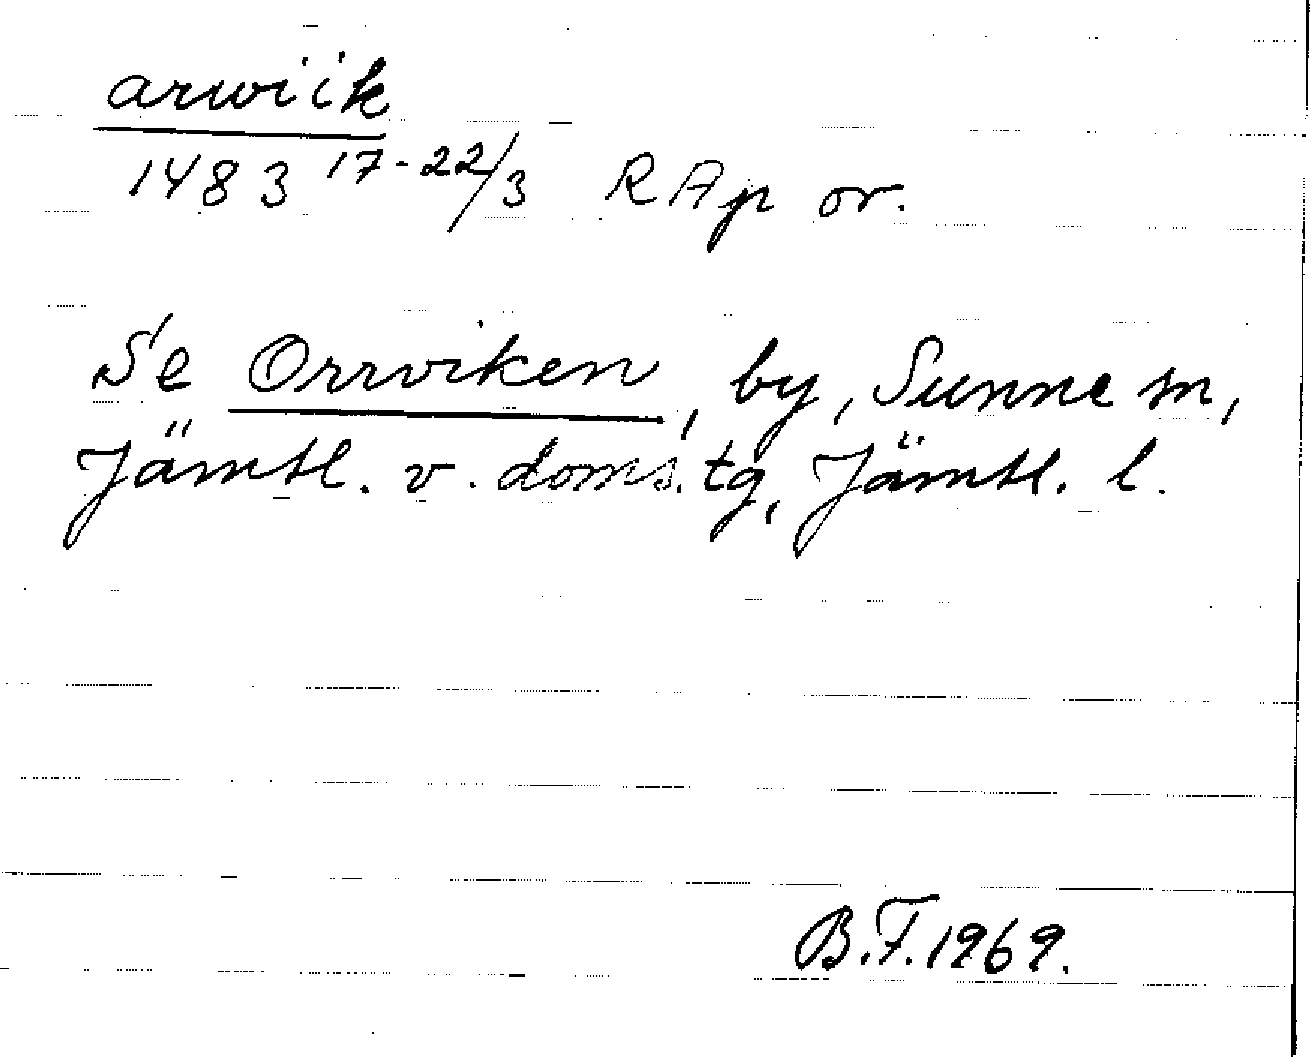 arwiik
1483 17-22/3 RAp or.
Se Orrviken, by, Sunne sn,
Jämtl. v. doms. tg, Jämtl. l.
B.F. 1969.